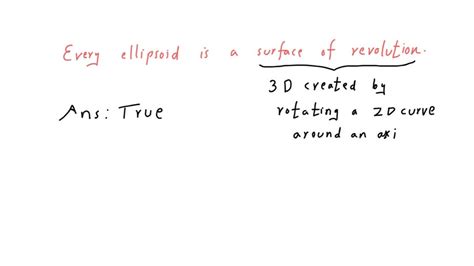 Every ellipsoid is a surface of revolution.
3D created by
rotating a 2D curve
around an axi
Ans: True